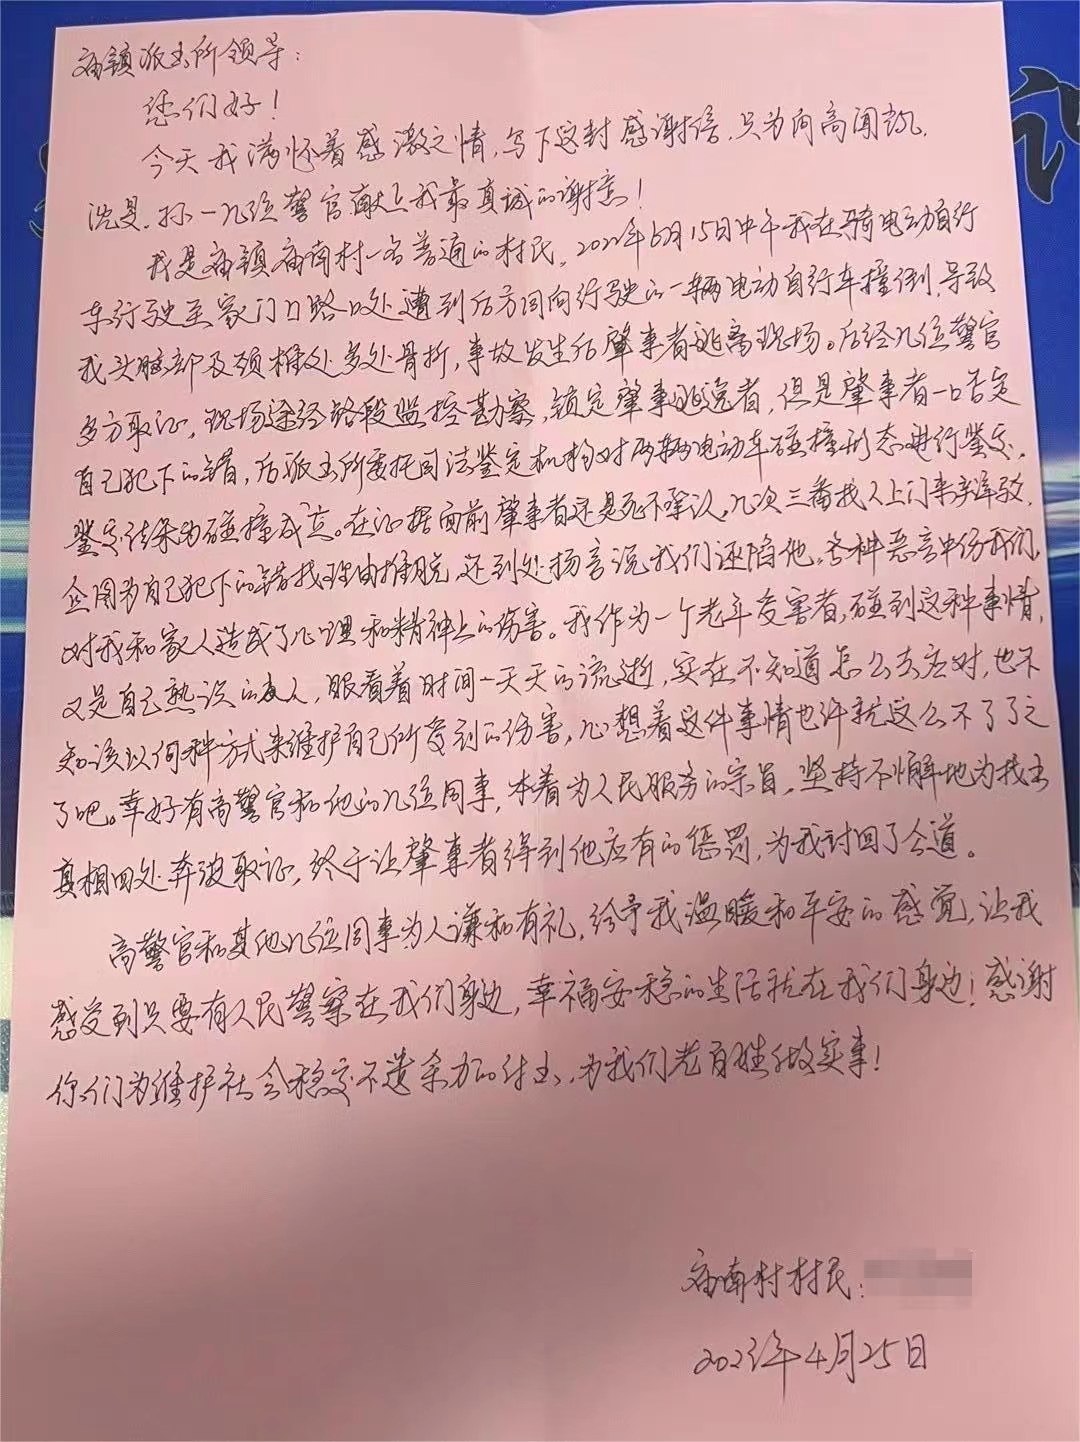 庙镇派出所领导：
您们好！
今天我满怀着感激之情，写下这封感谢信，只为向高闻
沈是、孙一几位警官献上我最真诚的谢意！
我是庙镇庙南村一名普通的村民，2022年6月15日中午我在骑电动自行
车行驶至家门口路口处遭到后方同向行驶的一辆电动自行车撞倒，导致
我头脑部及颈椎处多处骨折，事故发生后肇事者逃离现场。后经几位警官
多方取证，现场途经路段监控勘察，锁定肇事逃逸者，但是肇事者一口否定
自己犯下的错，后派出所委托司法鉴定机构对两辆电动车碰撞形态进行鉴定，
鉴定结果为碰撞成立。在证据面前肇事者还是死不承认，几次三番找人上门来
企图为自己犯下的错找理由推脱，还到处扬言说我们诬陷他，各种恶言中伤我们，
对我和家人造成了心理和精神上的伤害。我作为一个老年受害者，碰到这种事情，
又是自己熟识的人，眼看着时间一天天的流逝，实在不知道怎么去应对，也不
知该以何种方式来维护自己所受到的伤害，心想着这件事情也许就这么不了了之
了吧。幸好有高警官和他的几位同事，本着为人民服务的宗旨，坚持不懈地为找出
真相四处奔波取证，终于让肇事者得到他应有的惩罚，为我讨回了公道。
高警官和其他几位同事为人谦和有礼，给予我温暖和平安的感觉，让我
感受到只要有人民警察在我们身边，幸福安稳的生活就在我们身边！感谢
你们为维护社会稳定不遗余力的付出，为我们老百姓做实事！
庙南村村民：
2023年4月25日